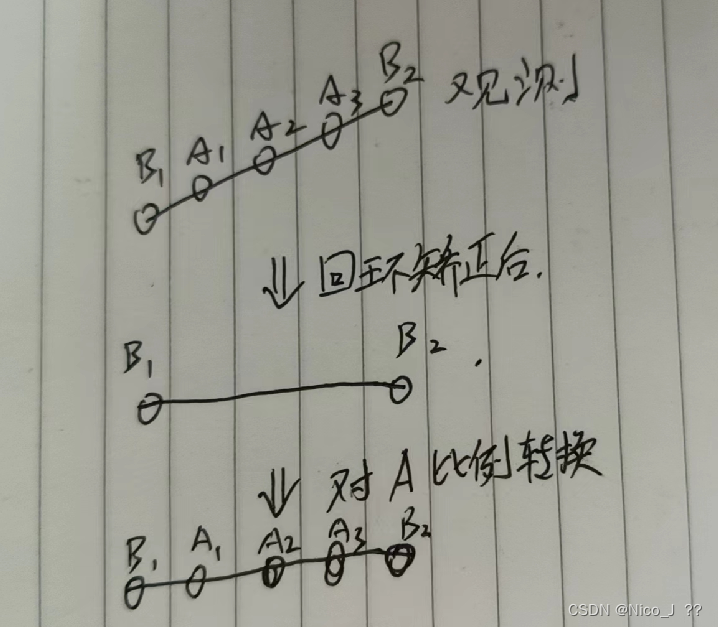 B₁ A₁ A₂ A₃ B₂ 观测
⇓ 回环矫正后.
B₁ B₂
⇓ 对A比例转换
B₁ A₁ A₂ A₃ B₂
CSDN @Nico_J ??